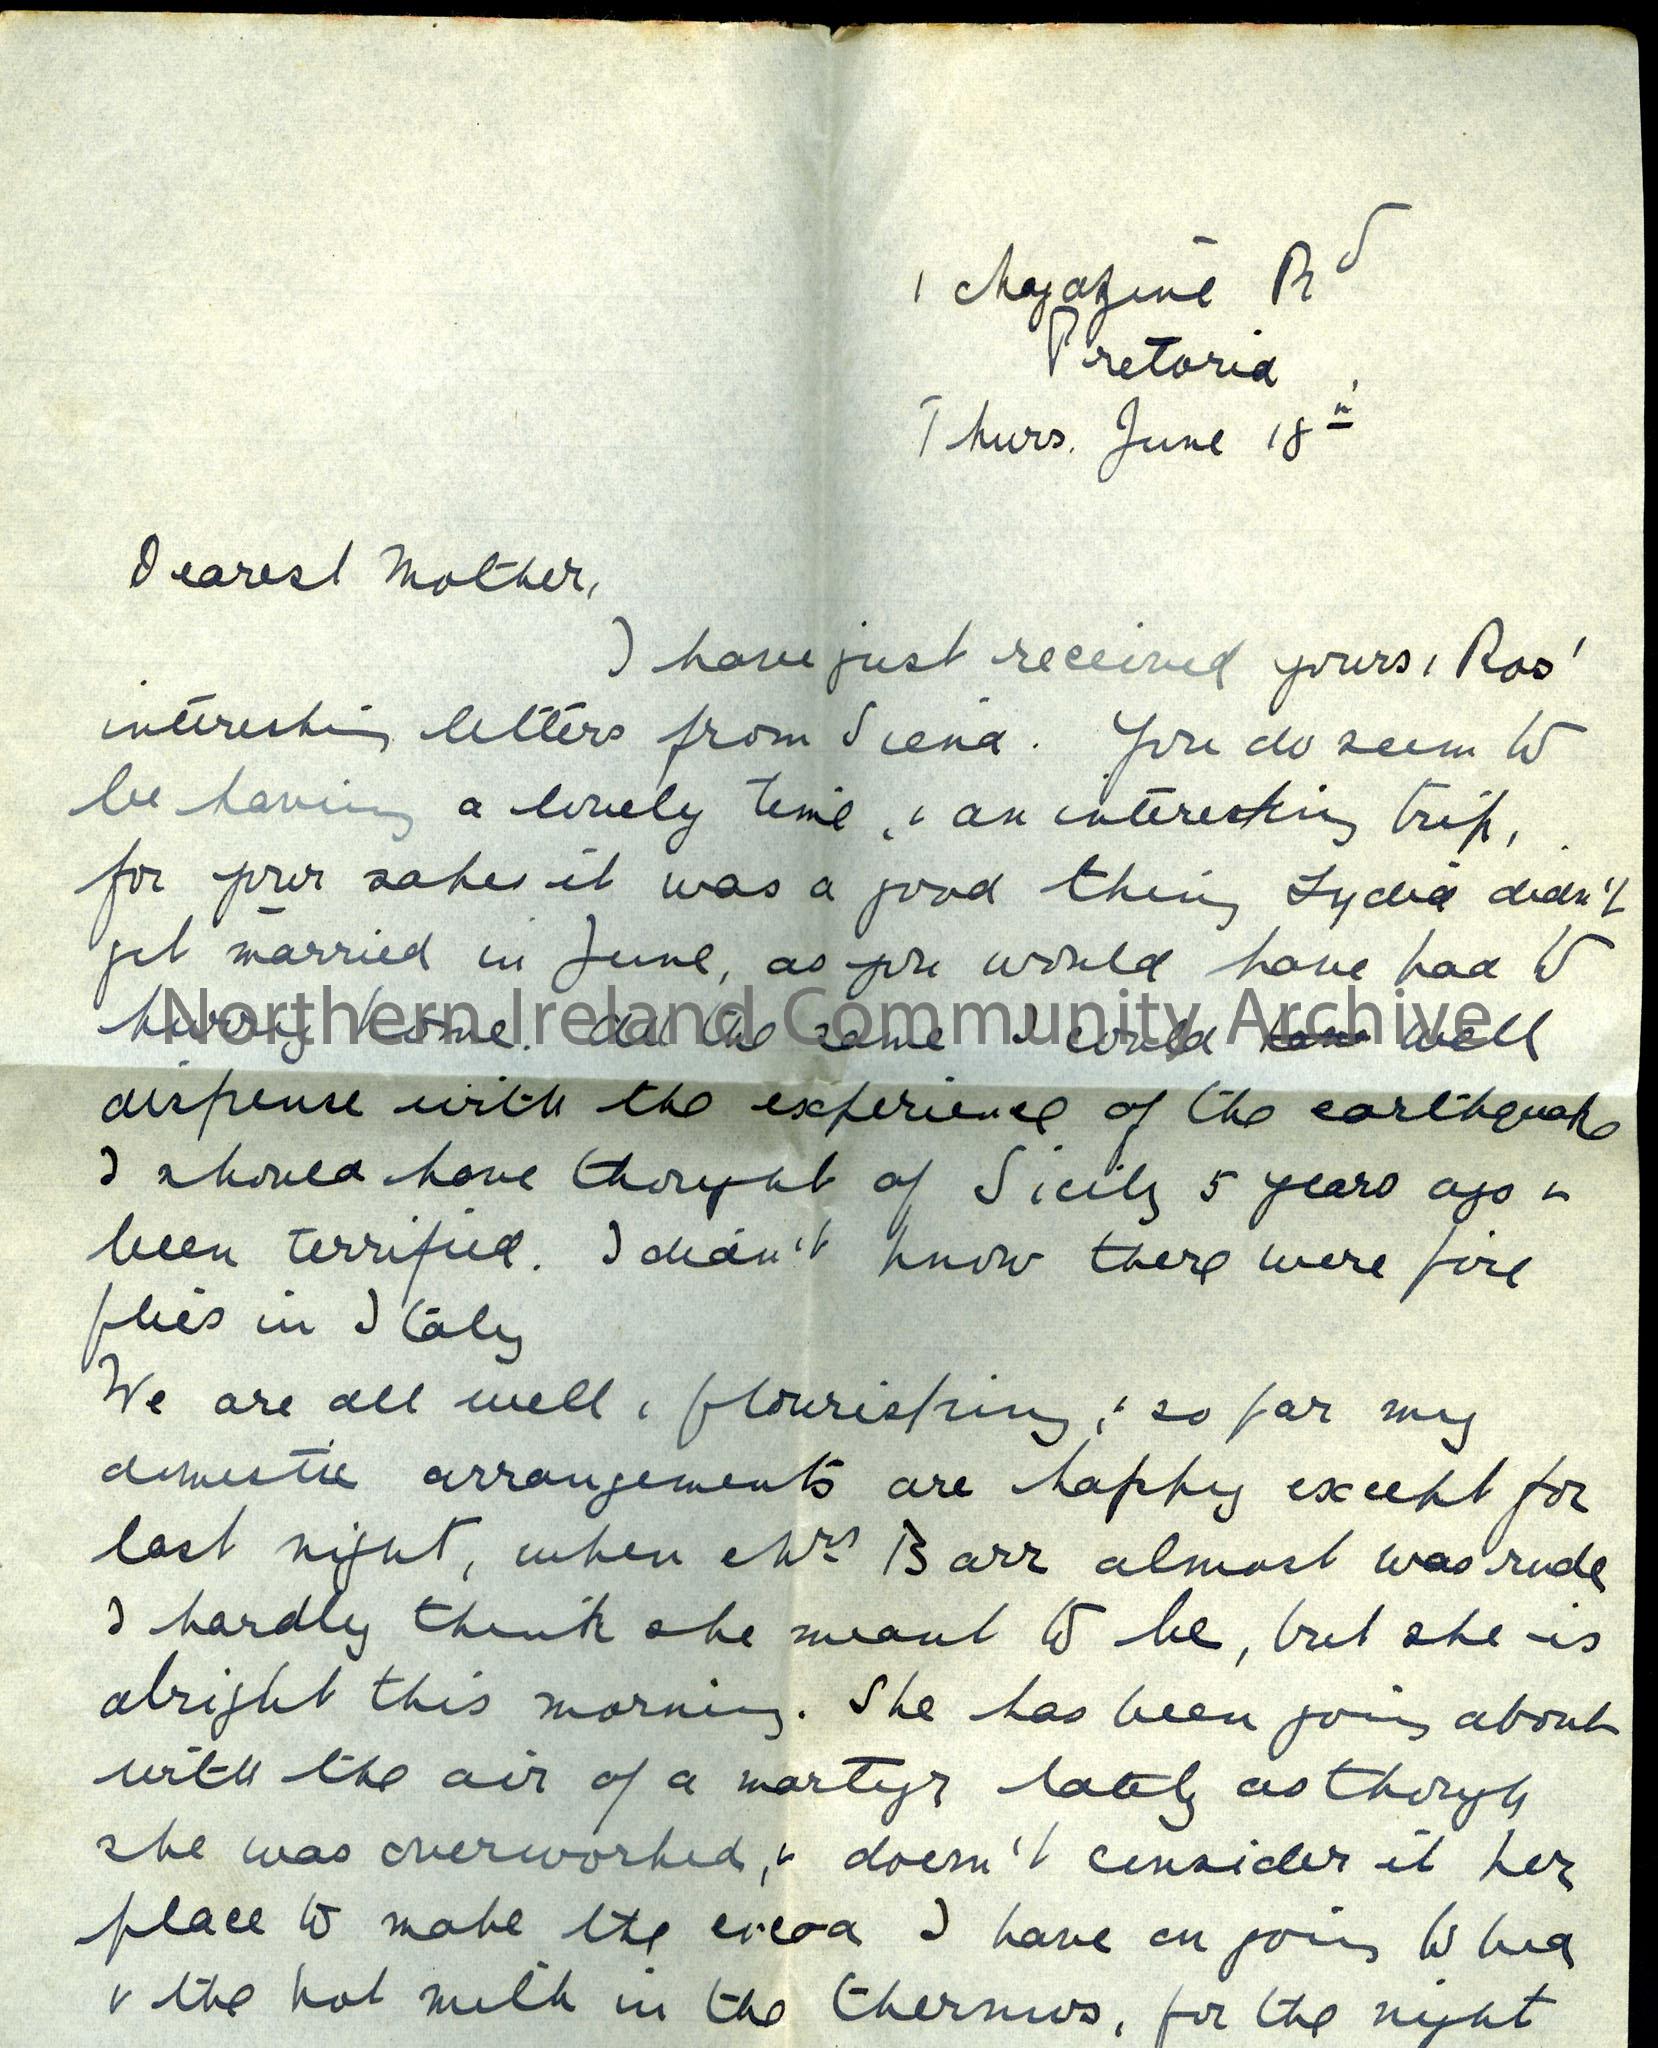 1 Magazine Rd
Pretoria
Thurs. June 18th
Dearest Mother,
I have just received yours & Ros'
interesting letters from Siena. You do seem to
be having a lovely time, & an interesting trip,
for your sakes it was a good thing Lydia didn't
get married in June, as you would have had to
hurry home. All the same I could have well
dispense with the experience of the earthquake
I should have thought of Sicily 5 years ago &
been terrified. I didn't know there were fire
flies in Italy
We are all well & flourishing, & so far my
domestic arrangements are happy except for
last night, when Mrs Barr almost was rude
I hardly think she meant to be, but she is
alright this morning. She has been going about
with the air of a martyr lately as though
she was overworked, & doesn't consider it her
place to make the cocoa I have on going to bed
& the hot milk in the thermos, for the night
Northern Ireland Community Archive